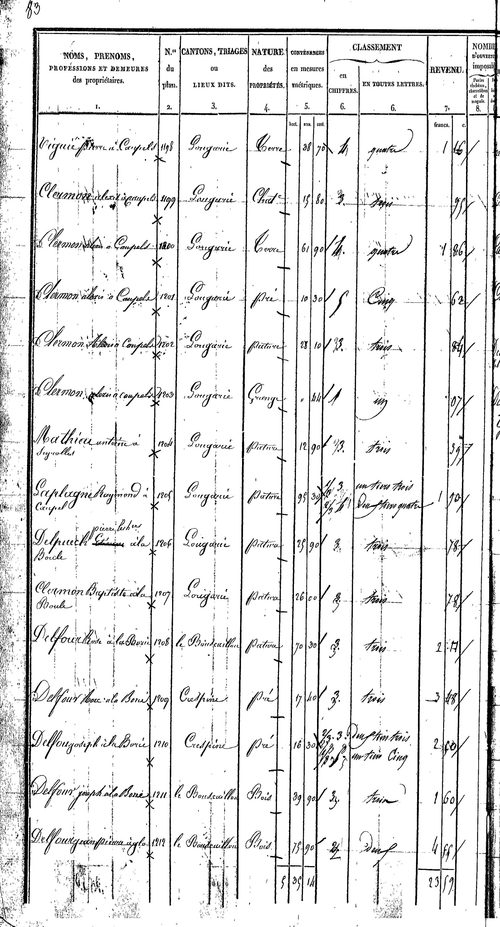 83
NOMS, PRENOMS,
PROFESSIONS ET DEMEURES
des propriétaires.
1.
N.os
du
plan.
2.
CANTONS, TRIAGES
ou
LIEUX DITS.
3.
NATURE
des
PROPRIÉTÉS.
4.
CONTENANCES
en mesures
métriques.
5.
CLASSEMENT
en
CHIFFRES.
6.
EN TOUTES LETTRES.
6.
REVENU.
7.
NOMBRE
8.
francs. c.
Viguié pierre à Caupels 1198 Gougarie Terre 38 70 4 quatre 1 16
Clermon alexis à Caupels 1199 Gougarie Chat. 15 80 3 trois 95
Clermon alexis à Caupels 1200 Gougarie Terre 61 90 4 quatre 1 86
Clermon alexis à Caupels 1201 Gougarie pré 10 30 5 Cinq 62
Clermon alexis à Caupels 1202 Gougarie pâture 28 10 3 trois 84
Clermon alexis à Caupels 1203 Gougarie Grange 44 1 un 07
Mathieu antoine à 1204 Gougarie pâture 12 90 3 trois 39
Laplagne Raymond à 1205 Gougarie pâture 95 30 3 un tiers trois 1 90
Delpuech à la 1206 Gougarie pâture 25 90 3 trois 78
Boule
Clermon Baptiste à la 1207 Gougarie pâture 26 00 3 trois 78
Boule
Delfour à la Borie 1208 le Boudouillou pâture 70 30 3 trois 2 11
Delfour à la Borie 1209 Crespine pré 17 40 3 trois 3 48
Delfour joseph à la Borie 1210 Crespine pré 16 30 2/3 3 deux tiers trois 2 50
un tiers Cinq
Delfour joseph à la Borie 1211 le Boudouillou Bois 39 90 3 trois 1 60
Delfour 1212 le Boudouillou Bois 75 90 2 deux 4 55
5 35 14 23 59